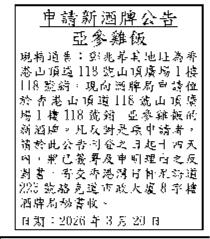 申請新酒牌公告
亞參雞飯
現特通告：彭兆華其地址為香
港山頂道118號山頂廣場1樓
118號鋪，現向酒牌局申請位
於香港山頂道118號山頂廣
場1樓118號鋪 亞參雞飯的
新酒牌。凡反對是項申請者，
請於此公告刊登之日起十四天
內，將已簽署及申明理由之反
對書，寄交香港灣仔軒尼詩道
225號駱克道市政大廈8字樓
酒牌局秘書收。
日期：2026年3月20日